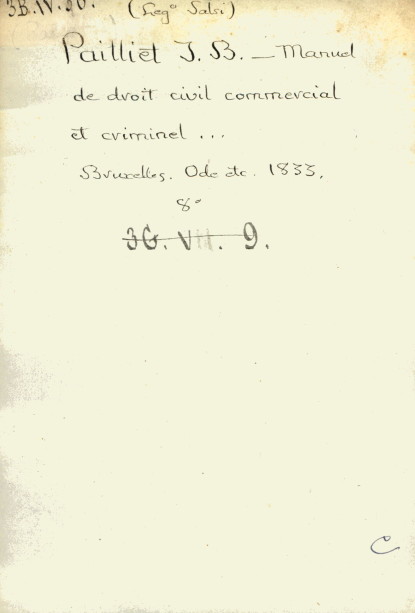 3B.IV.90. (Leg° Salvi)
Pailliet J. B. — Manuel
de droit civil commercial
et criminel ...
Bruxelles. Ode etc. 1833.
8°
3G. VII. 9.
C